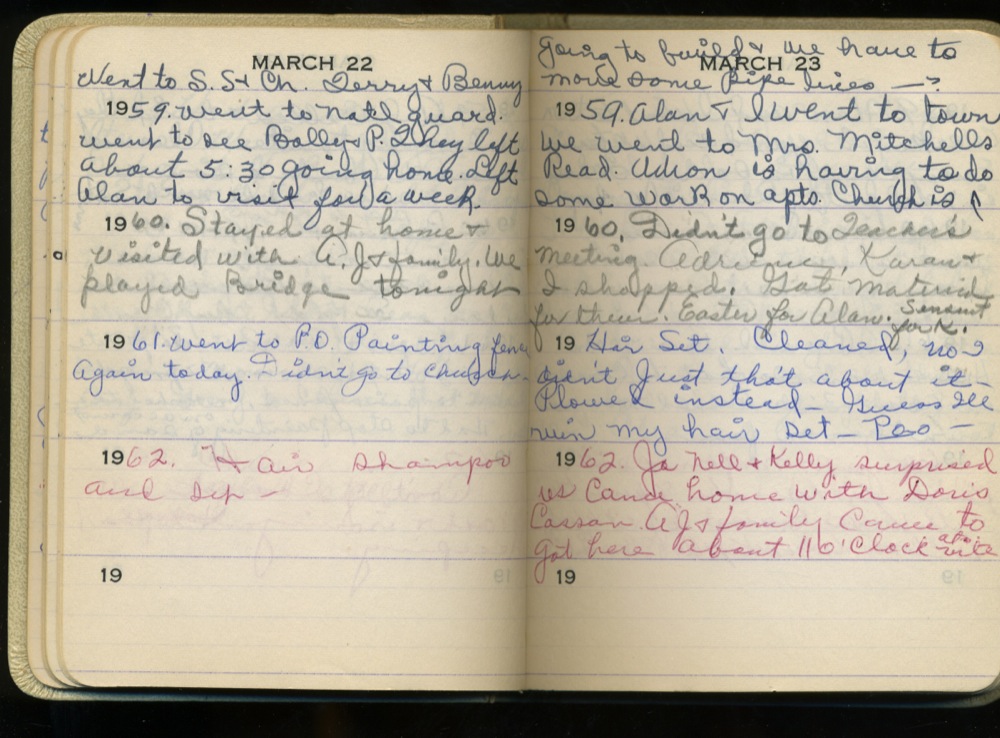 MARCH 22
Went to S.S & Ch. Terry & Benny
1959. went to natl guard.
went to see Bally & P. They left
about 5:30 going home. Left
Alan to visit for a week.
1960. Stayed at home &
visited with A.J & family. We
played Bridge tonight
1961. went to P.O. Painting fence
Again today. Didn't go to church.
1962. Hair shampoo
and
19
going to build & we have to
MARCH 23
move some pipe lines —?
1959. Alan & I went to town
we went to Mrs. Mitchells
Read. is having to do
some work on apts. Church is
1960. Didn't go to Teachers
meeting. Adrienne, Karan &
I shopped. Got material
for their Easter for Alan.
for K.
19 Hair Set. Cleaned, no -
didn't Just that about it -
Plowed instead - Guess I'll
ruin my hair set - Poo -
1962. Ja Nell & Kelly surprised
us Came home with Doris
Cassan. A.J & family Came to
got here about 11 o'clock
19